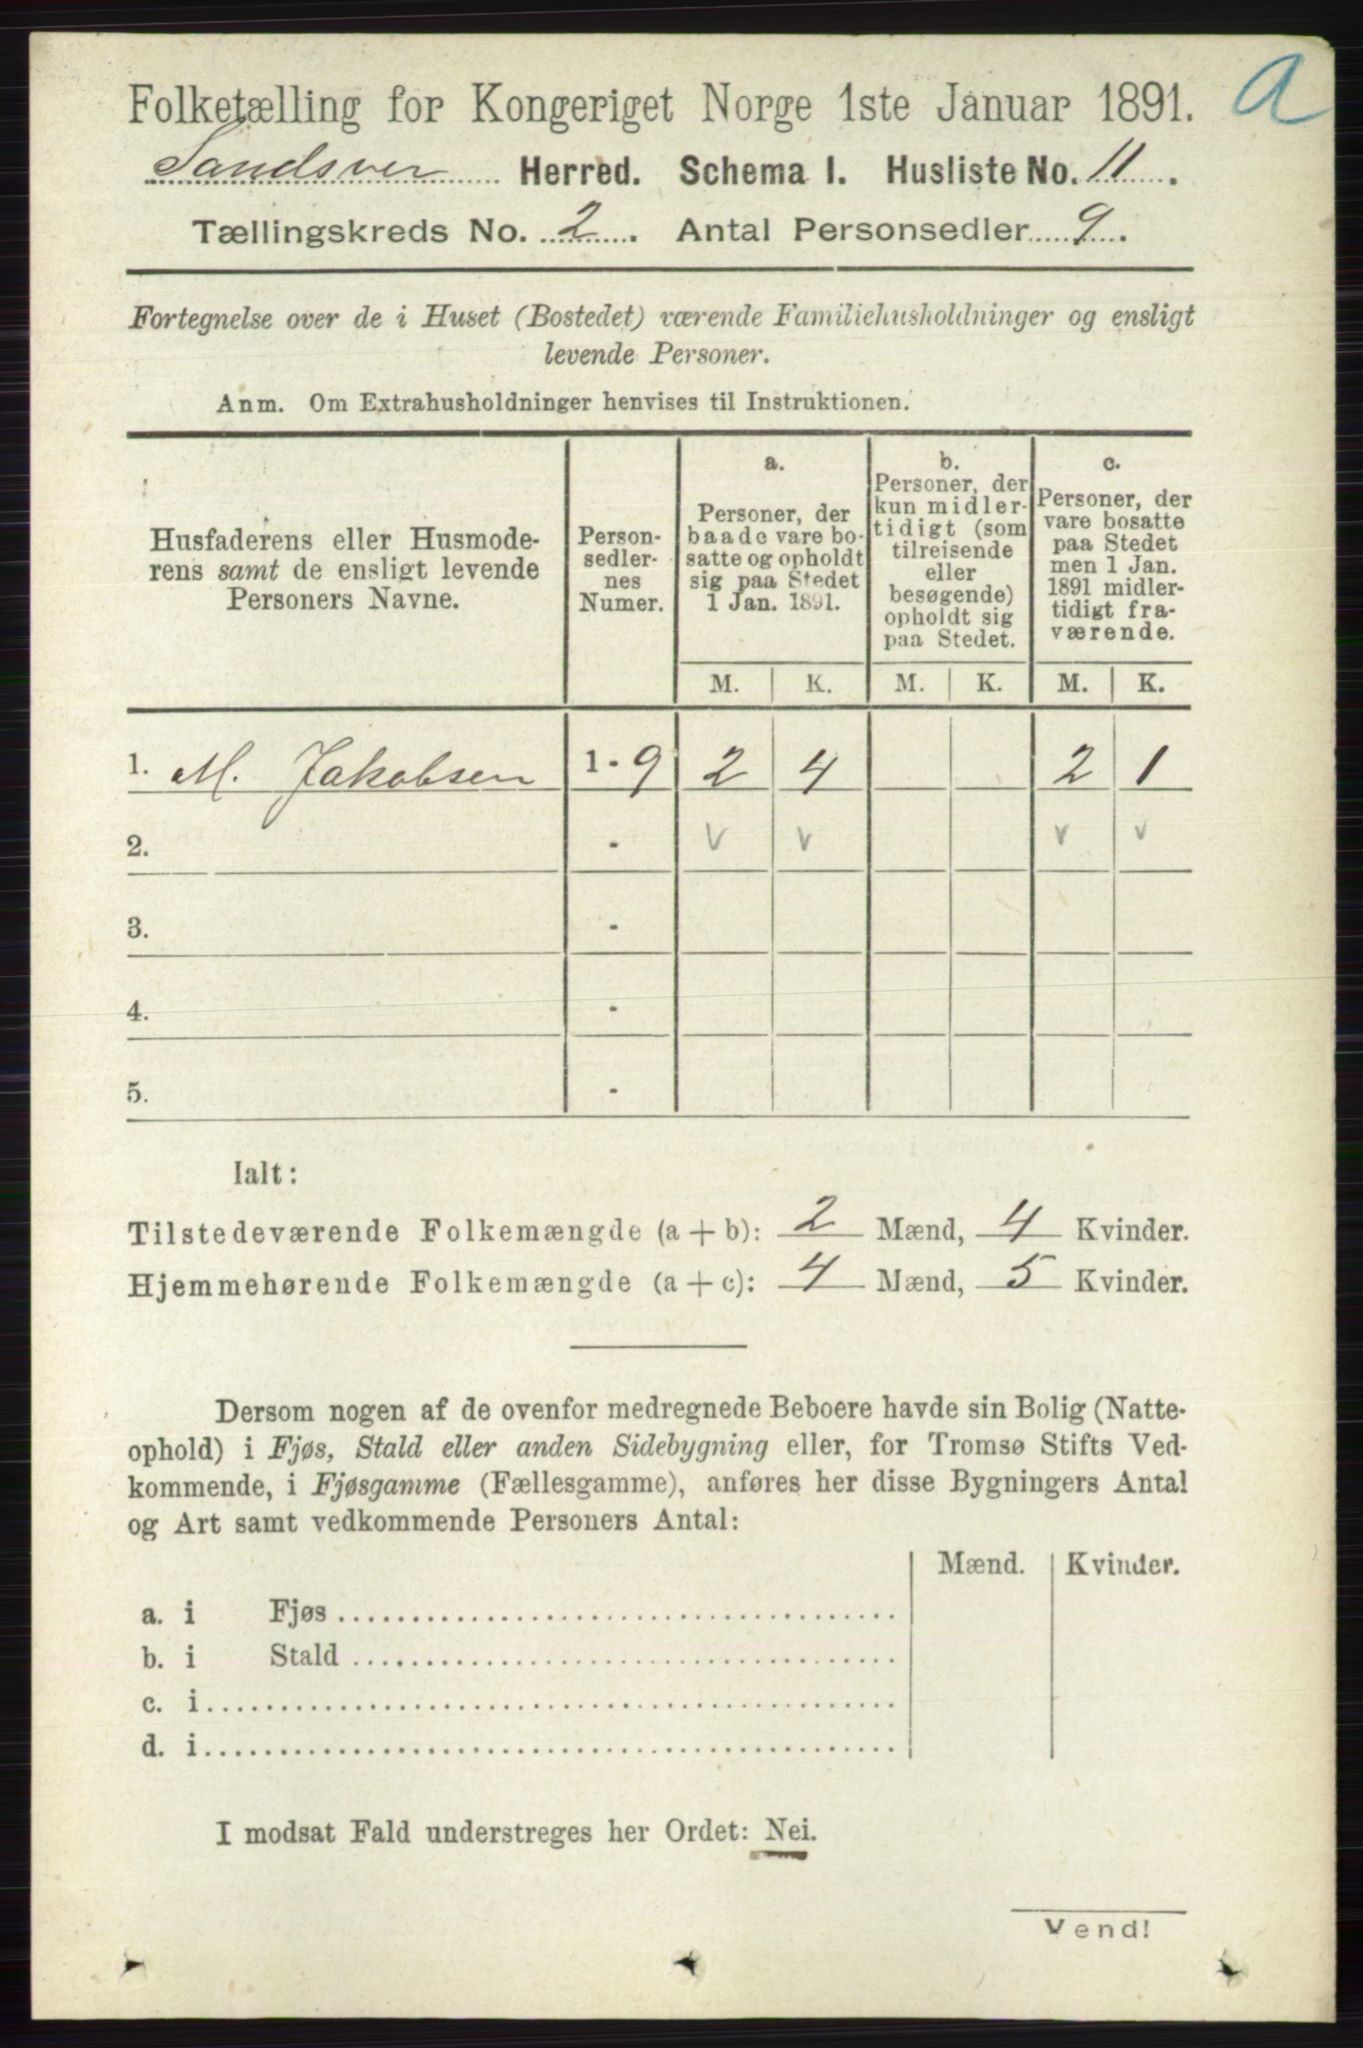 a
Folketælling for Kongeriget Norge 1ste Januar 1891.
Sandsver Herred. Schema I. Husliste No. 11.
Tællingskreds No. 2. Antal Personsedler 9.
Fortegnelse over de i Huset (Bostedet) værende Familiehusholdninger og ensligt
levende Personer.
Anm. Om Extrahusholdninger henvises til Instruktionen.
Husfaderens eller Husmode-
rens samt de ensligt levende
Personers Navne.
Person-
sedler-
nes
Numer.
a.
Personer, der
baade vare bo-
satte og opholdt
sig paa Stedet
1 Jan. 1891.
b.
Personer, der
kun midler-
tidigt (som
tilreisende
eller
besøgende)
opholdt sig
paa Stedet.
c.
Personer, der
vare bosatte
paa Stedet
men 1 Jan.
1891 midler-
tidigt fra-
værende.
M. K. M. K. M. K.
1. M. Jakobsen 1-9 2 4 2 1
2. - v v v v
3. -
4. -
5. -
Ialt:
Tilstedeværende Folkemængde (a + b): 2 Mænd, 4 Kvinder.
Hjemmehørende Folkemængde (a + c): 4 Mænd, 5 Kvinder.
Dersom nogen af de ovenfor medregnede Beboere havde sin Bolig (Natte-
ophold) i Fjøs, Stald eller anden Sidebygning eller, for Tromsø Stifts Ved-
kommende, i Fjøsgamme (Fællesgamme), anføres her disse Bygningers Antal
og Art samt vedkommende Personers Antal:
Mænd. Kvinder.
a. i Fjøs
b. i Stald
c. i
d. i
I modsat Fald understreges her Ordet: Nei.
Vend!